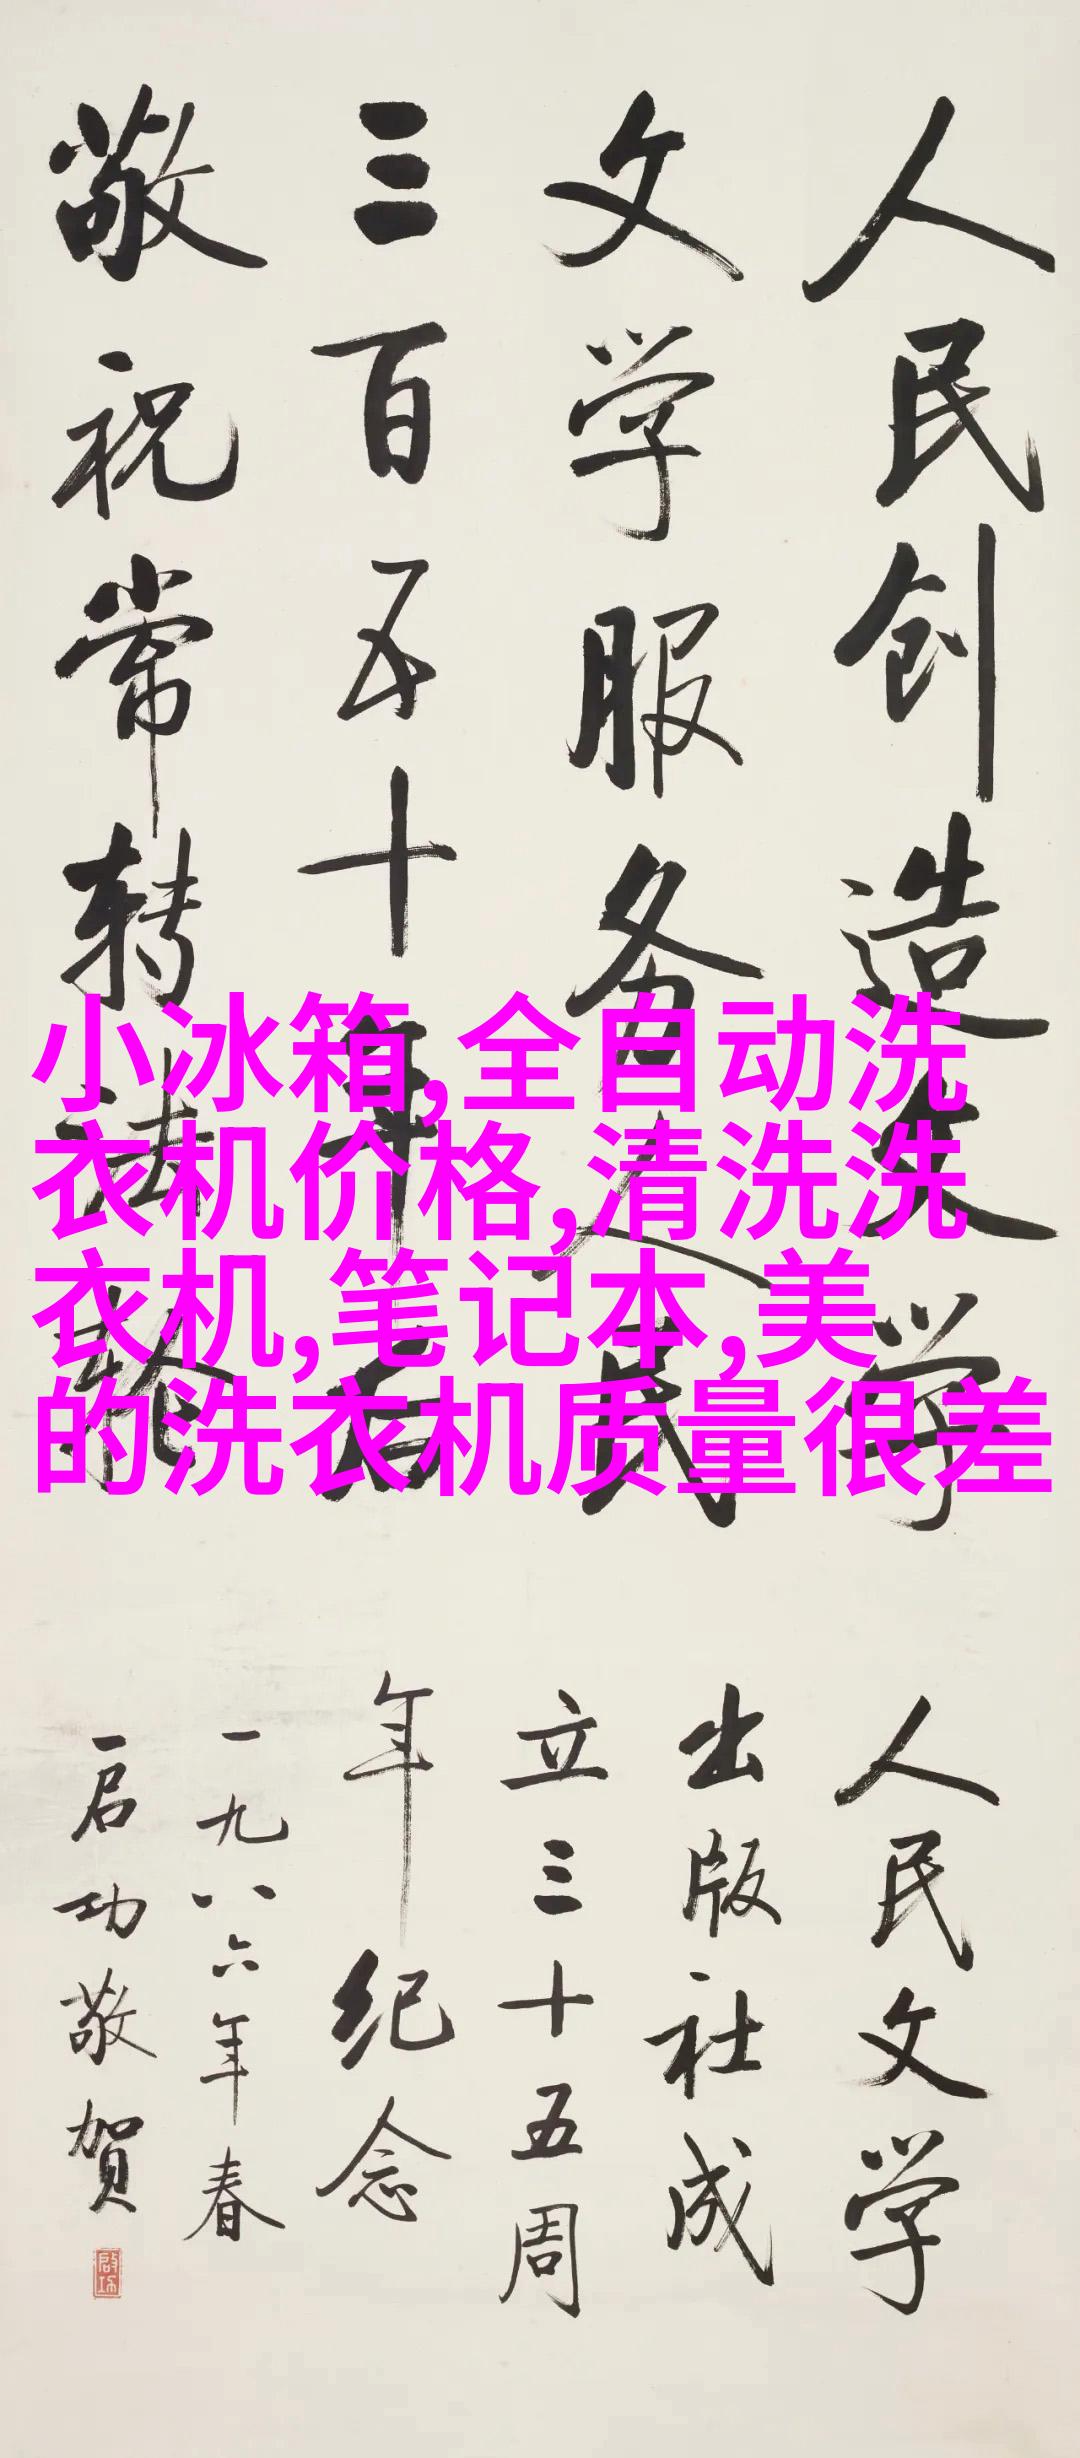 人民创造文学
文学服务人民
三百五十年后
敬祝常转法轮
小冰箱,全自动洗
衣机价格,清洗洗
衣机,笔记本,美
的洗衣机质量很差
人民文学
出版社成
立三十五周
年纪念
一九八六年春
启功敬贺
启功